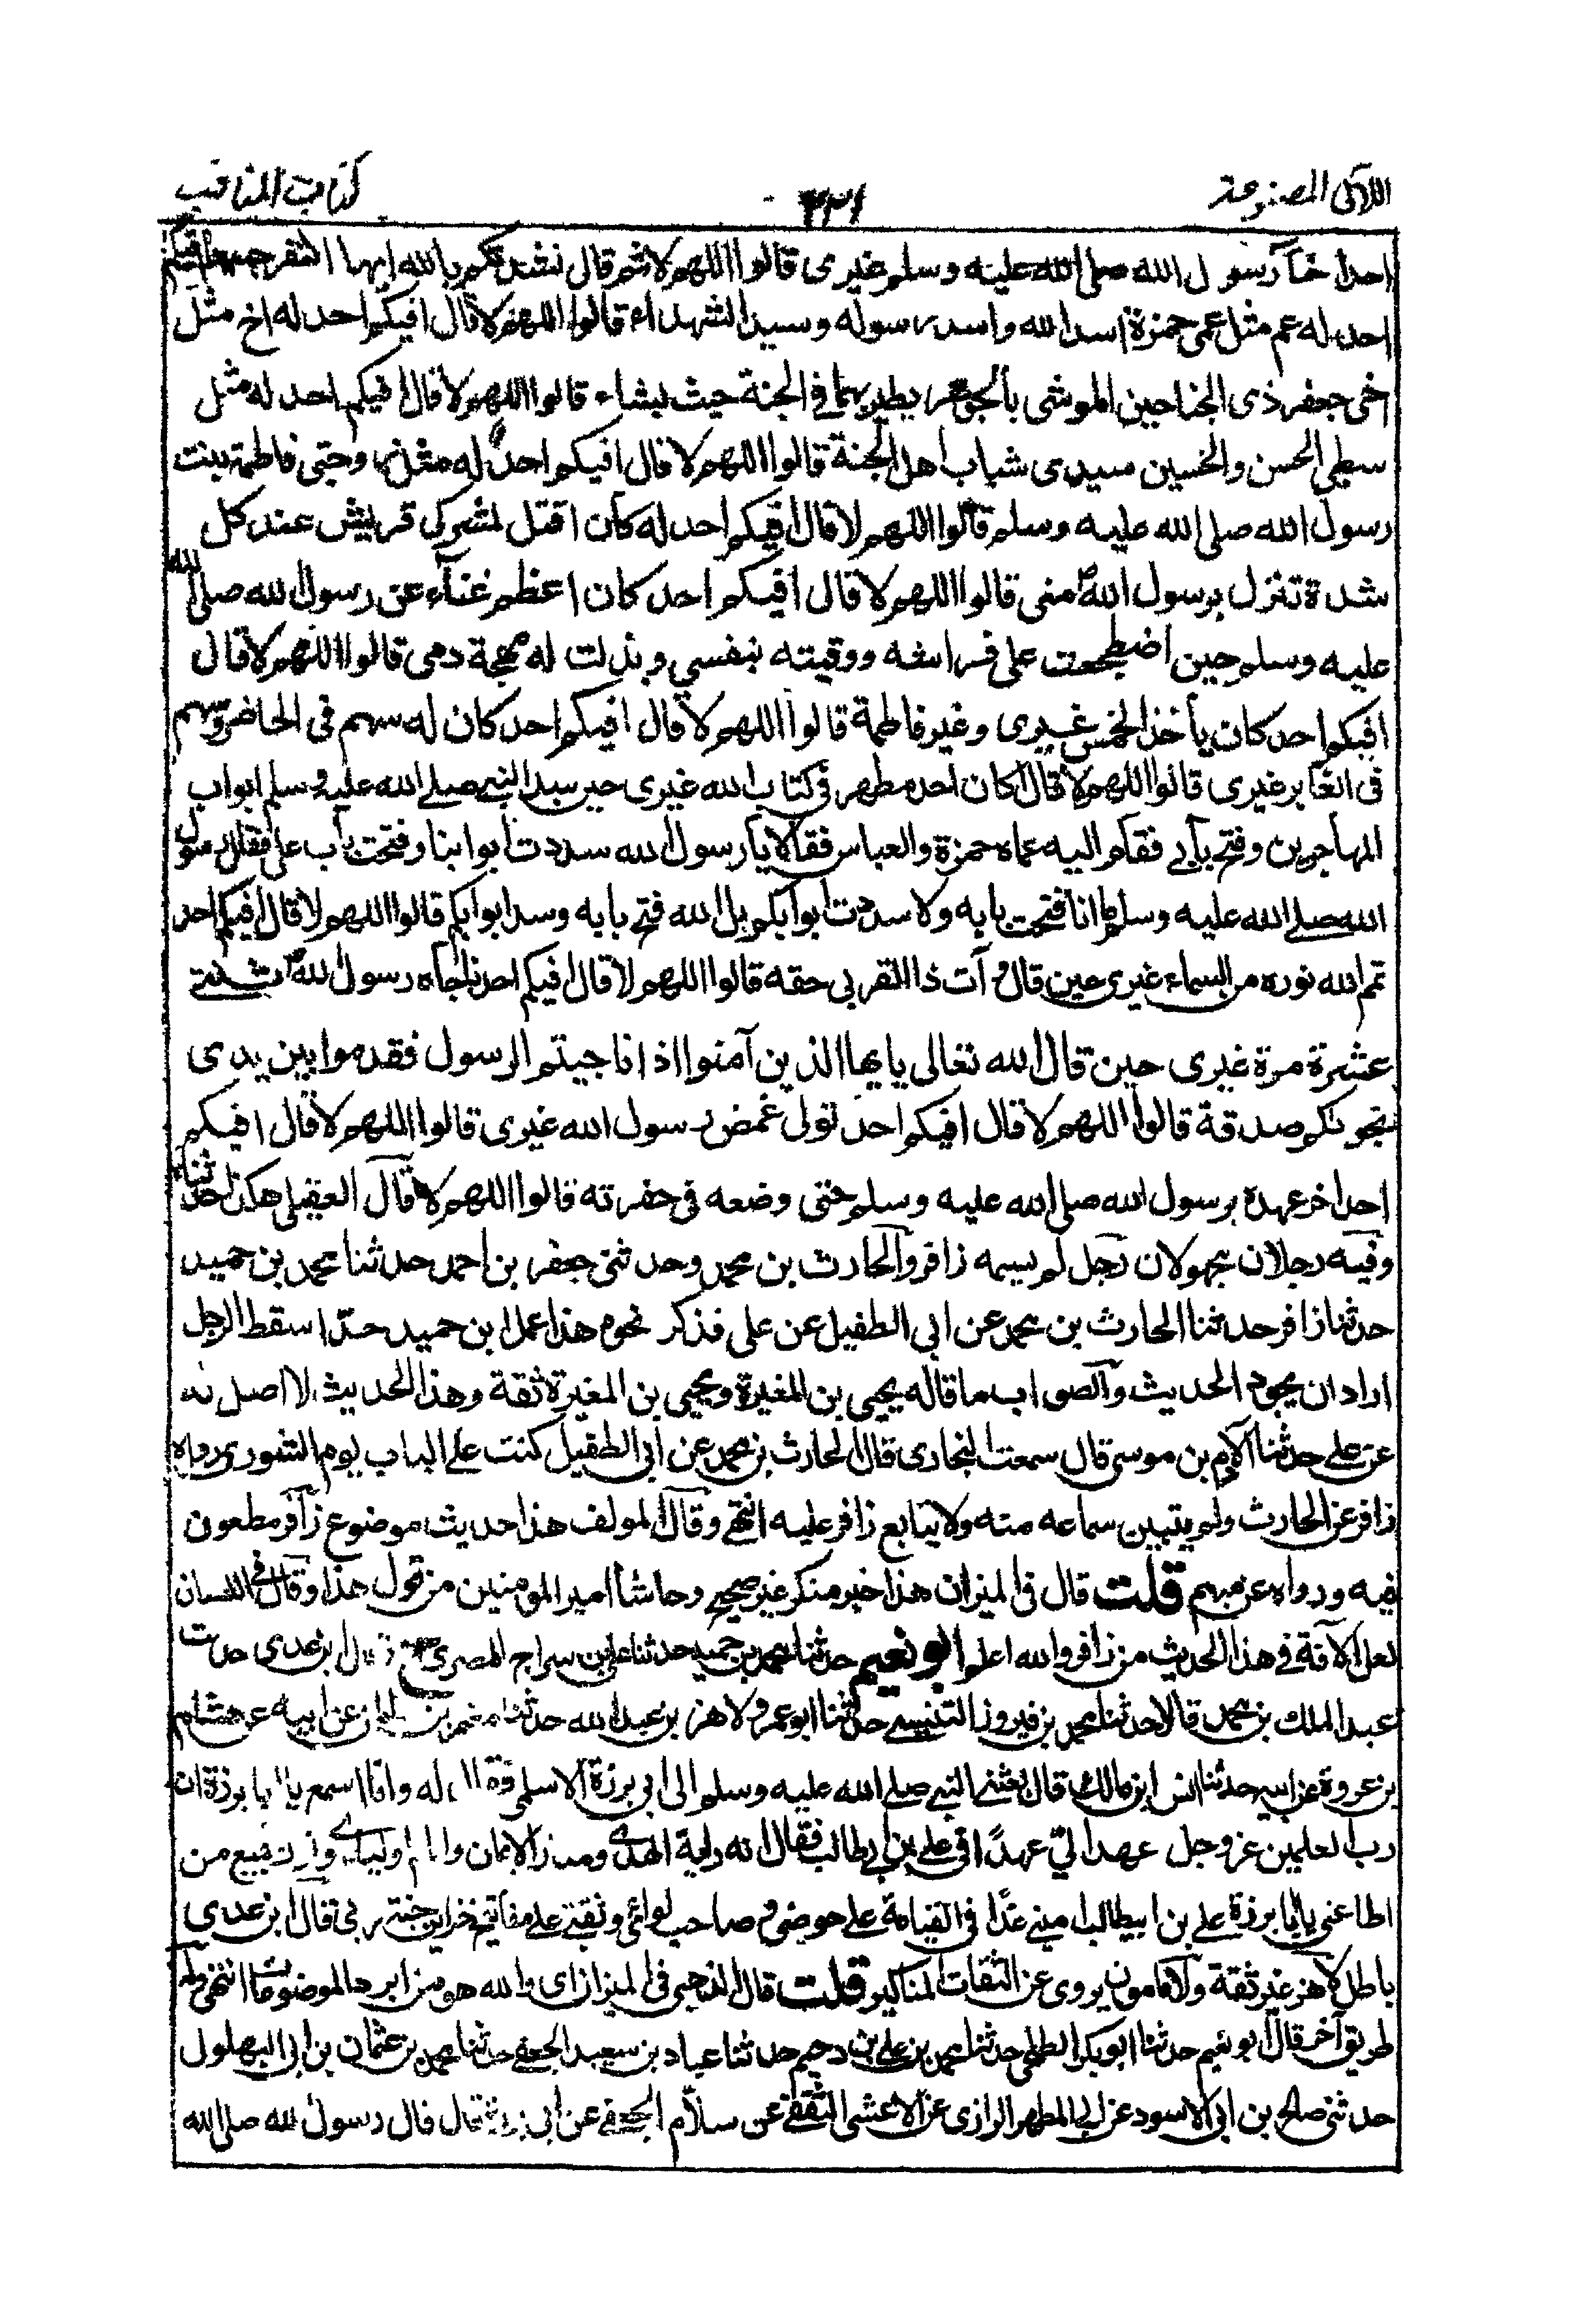 اللآلى المصنوعة
٣٢١
كتاب المناقب
احدا خا رسول الله صلى الله عليه وسلم غيرى قالوا اللهم لا ثم قال نشدتكم بالله ايها النفر جميعا افيكم
احد له عم مثل عمى حمزة اسد الله واسد رسوله وسيد الشهداء قالوا اللهم لا قال افيكم احد له اخ مثل
اخى جعفر ذى الجناحين الموشى بالجوهر يطير بهما فى الجنة حيث يشاء قالوا اللهم لا قال افيكم احد له مثل
سبطى الحسن والحسين سيدى شباب اهل الجنة قالوا اللهم لا قال افيكم احد له مثل زوجتى فاطمة بنت
رسول الله صلى الله عليه وسلم قالوا اللهم لا قال افيكم احد له كان اقتل لمشركى قريش عند كل
شدة تنزل برسول الله منى قالوا اللهم لا قال افيكم احد كان اعظم غنآء عن رسول الله صلى الله
عليه وسلم حين اضطجعت على فراشه ووقيته بنفسي وبذلت له مهجة دمى قالوا اللهم لا قال
افيكم احد كان يأخذ الخمس غيرى وغير فاطمة قالوا اللهم لا قال افيكم احد كان له سهم فى الحاضر وسهم
فى الغابر غيرى قالوا اللهم لا قال اكان احد مطهر فى كتاب الله غيرى حين سد النبى صلى الله عليه وسلم ابواب
المهاجرين وفتح بابى فقام اليه عماه حمزة والعباس فقالا يا رسول الله سددت ابوابنا وفتحت باب على فقال رسول
الله صلى الله عليه وسلم ما انا فتحت بابه ولا سددت ابوابكم بل الله فتح بابه وسد ابوابكم قالوا اللهم لا قال افيكم احد
تمم الله نوره من السماء غيرى حين قال وآت ذا القربى حقه قالوا اللهم لا قال افيكم احد ناجاه رسول الله ثنتى
عشرة مرة غيرى حين قال الله تعالى يايها الذين آمنوا اذا ناجيتم الرسول فقدموا بين يدى
نجوىكم صدقة قالوا اللهم لا قال افيكم احد تولى غمض رسول الله غيرى قالوا اللهم لا قال افيكم
احد اخر عهده برسول الله صلى الله عليه وسلم حتى وضعه فى حفرته قالوا اللهم لا قال العقيلى هكذا حدثناه
وفيه رجلان مجهولان رجل لم يسمه زافر والحارث بن محمد وحدثنى جعفر بن احمد حدثنا محمد بن حميد
حدثنا زافر حدثنا الحارث بن محمد عن ابى الطفيل عن على فذكر نحوه هذا عمل ابن حميد حدّا اسقط الرجل
اراد ان يجود الحديث والصواب ما قاله يحيى بن المغيرة ويحيى بن المغيرة ثقة وهذا الحديث لا اصل له
عن على حدثنا آدم بن موسى قال سمعت البخارى قال الحارث بن محمد عن ابى الطفيل كنت على الباب يوم الشورى رواه
زافر عن الحارث ولم يتبين سماعه منه ولا يتابع زافر عليه انتهى وقال المولف هذا حديث موضوع زافر مطعون
فيه ورواه عن مبهم قلت قال فى الميزان هذا خبر منكر غير صحيح وحاشا امير المومنين من قول هذا وقال فى اللسان
لعل الآفة فى هذا الحديث من زافر والله اعلم ابو نعيم حدثنا محمد بن حميد حدثنا على بن سراج المصرى ح قال ابن عدى حدث
عبد الملك بن محمد قالا حدثنا محمد بن فيروز التنيسى حدثنا ابو عمرو لاهز بن عبد الله حدثنا معتمر بن سليمان عن ابيه عن هشام
بن عروة عن ابيه حدثنا انس ابن مالك قال بعثنى النبى صلى الله عليه وسلم الى ابى برزة الاسلمى فقال له وانا اسمع يا ابا برزة ان
رب العلمين عز وجل عهد الىّ عهدًا فى على بن ابى طالب فقال انه راية الهدى ومنار الايمان وامام اوليائى ونور جميع من
اطاعنى يا ابا برزة على بن ابيطالب امينى غدًا فى القيامة على حوضى وصاحب لوائى وثقتى على مفاتيح خزاين جنة ربى قال ابن عدى
باطل لاهز غير ثقة ولا مامون يروى عن الثقات المناكير قلت قال الذهبى فى الميزان اى والله هو من ابرد الموضوعات انتهى وله
طريق آخر قال ابو نعيم حدثنا ابو بكر الطلحى حدثنا محمد بن على بن دحيم حدثنا عباد بن سعيد الجعفى حدثنا محمد بن عثمان بن ابى البهلول
حدثنى صالح بن ابى الاسود عن ابى المطهر الرازى عن الاعشى الثقفى عن سلام الجعفى عن ابى برزة قال قال رسول الله صلى الله